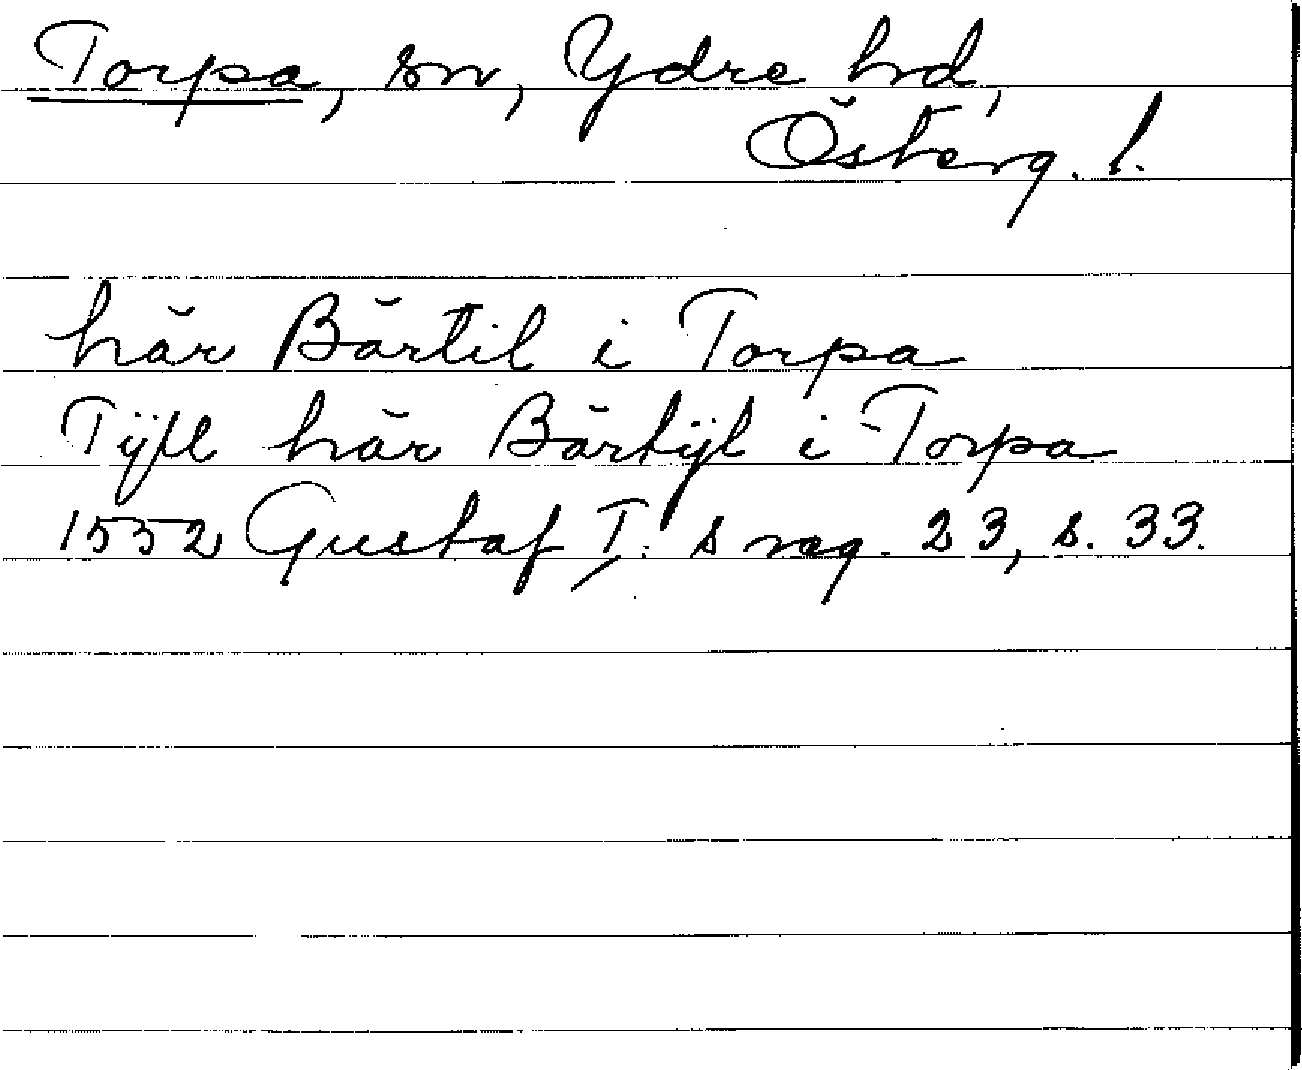 Torpa, sn, Ydre hd,
Österg. l.
här Bärtil i Torpa
Tÿll här Bärtÿl i Torpa
1552 Gustaf I:s reg. 23, s. 33.